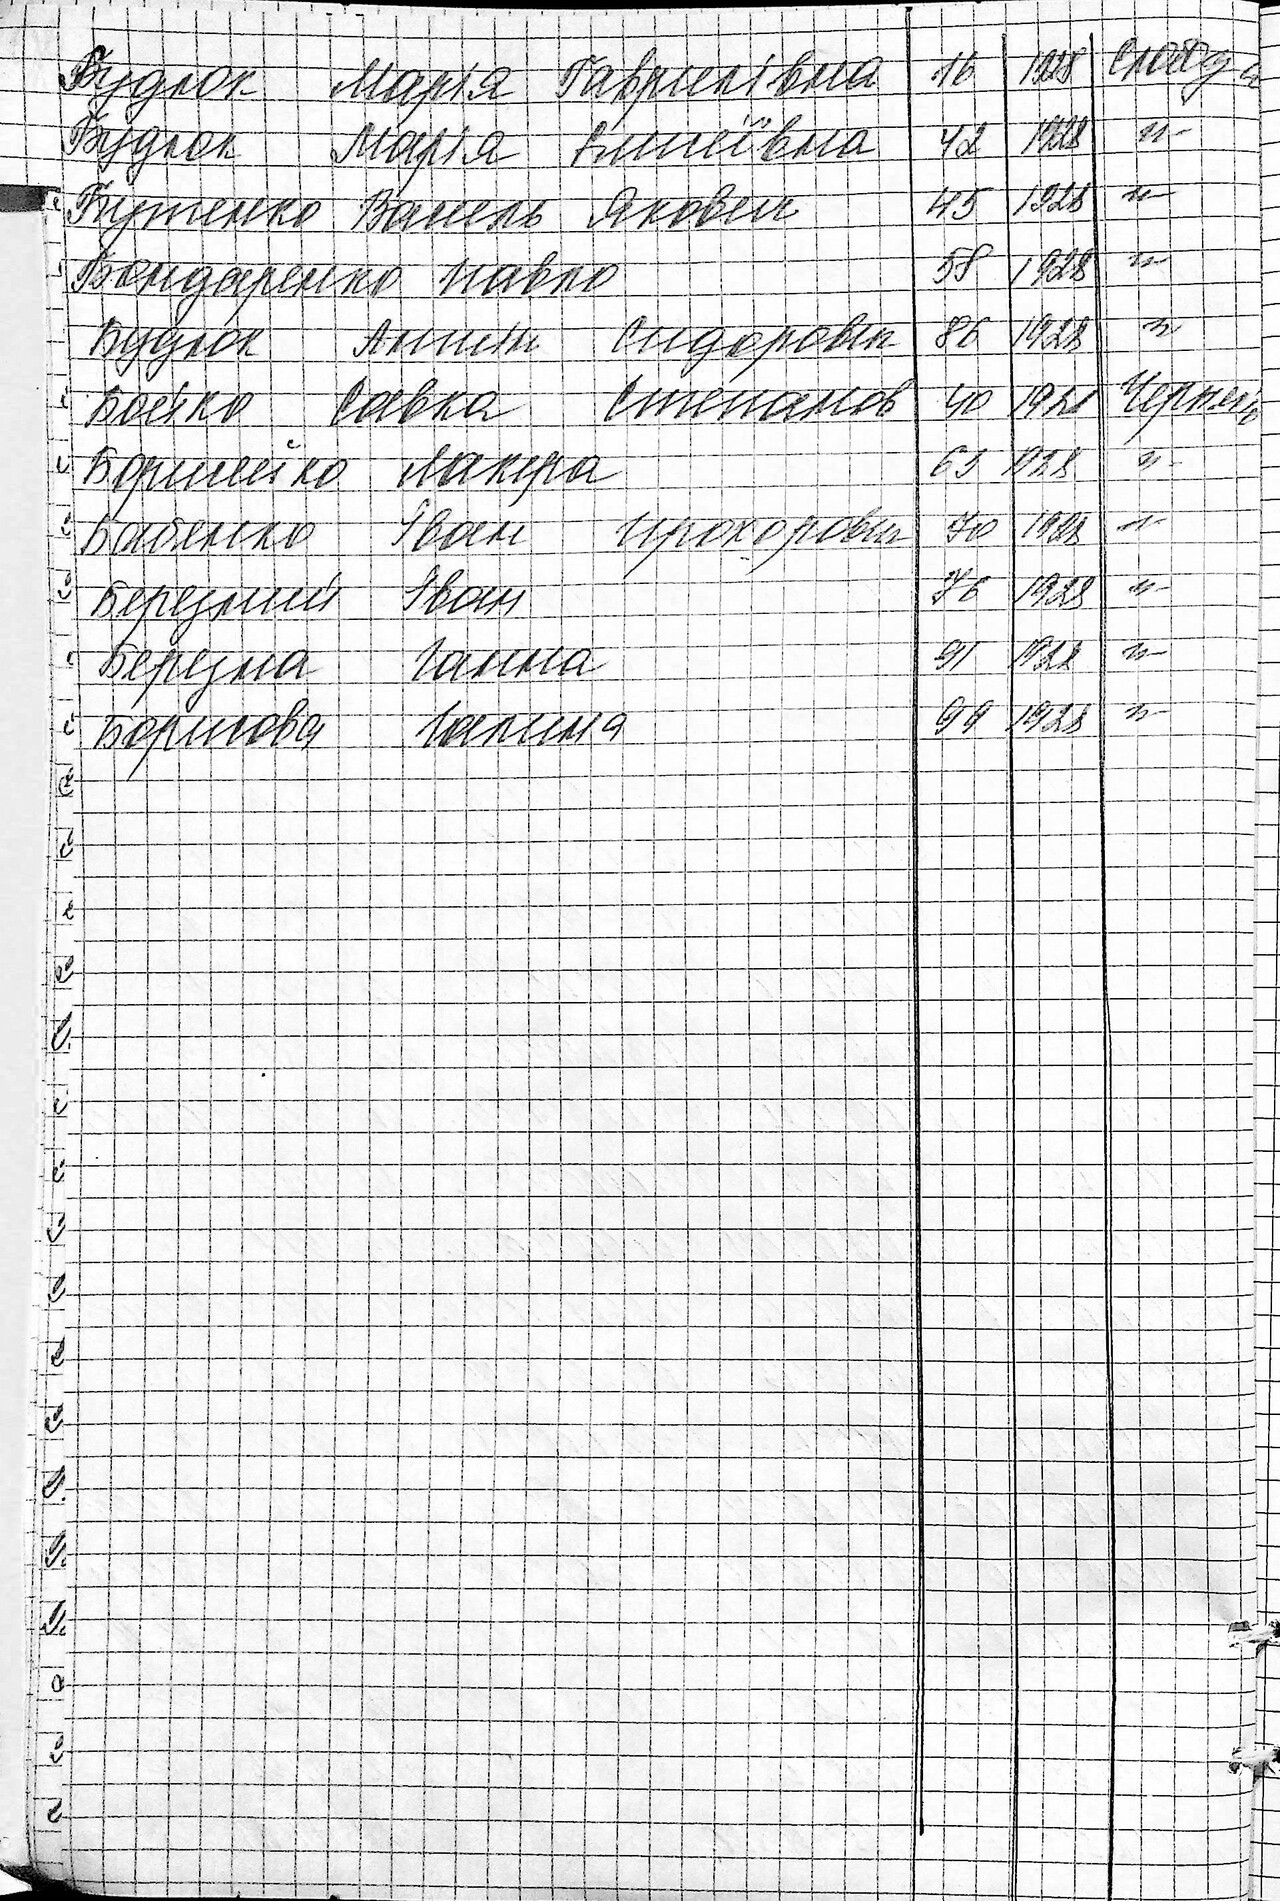 Будлок Марія Гаврилівна 16 1928 Слобода
Будлок Марія Єлисеївна 42 1928 -"-
Бутенко Василь Якович 45 1928 -"-
Бондаренко Павло 58 1928 -"-
Будлок Сидорович 86 1928 -"-
Бойко Савка Степанов 40 1928
Борисейко 63 1928 -"-
Бабенко Іван Прохорович 70 1928 -"-
Березний Іван 76 1928 -"-
Березна Ганна 91 1928 -"-
Борисова Галина 99 1928 -"-